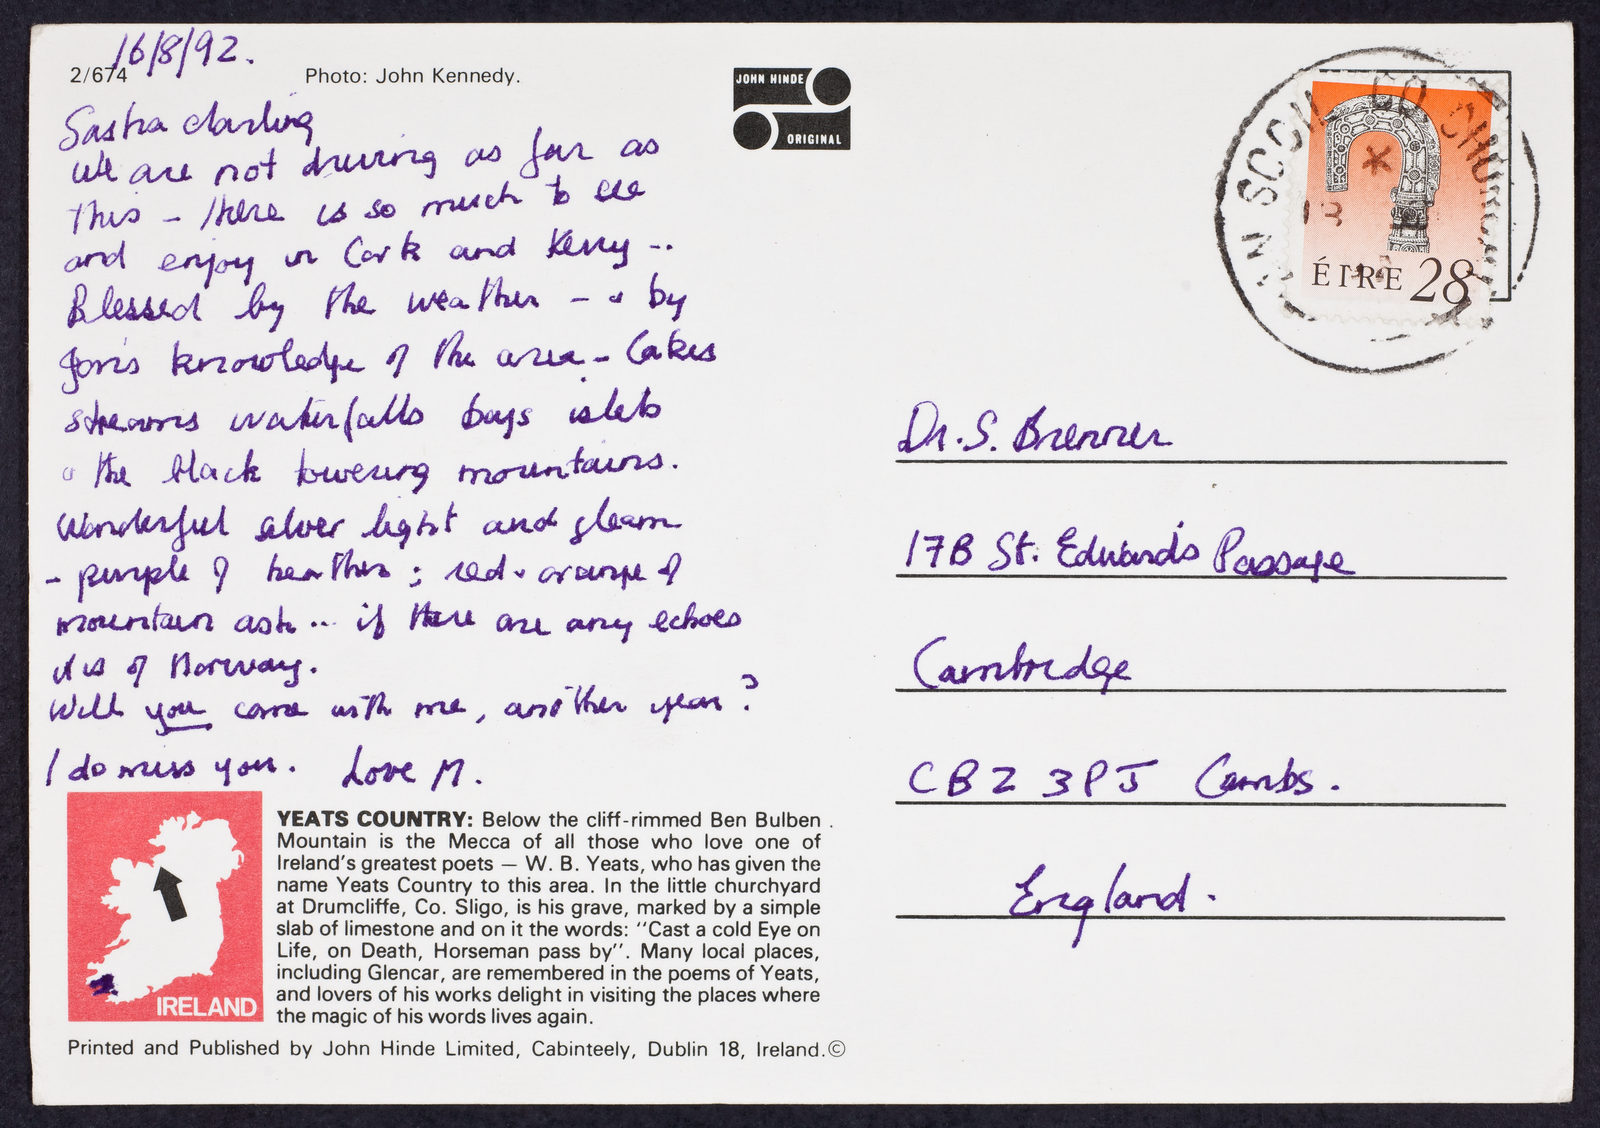 16/8/92.
2/674
Photo: John Kennedy.
JOHN HINDE
ORIGINAL
Sasha darling
We are not driving as far as
this - there is so much to see
and enjoy in Cork and Kerry -..
Blessed by the weather - & by
Jon's knowledge of the area - Lakes
streams waterfalls bays islets
& the black towering mountains.
Wonderful silver light and gleam
- purple of heather; red & orange of
mountain ash .. if there are any echoes
it is of Norway.
Will you come with me, another year?
I do miss you. Love M.
IRELAND
YEATS COUNTRY: Below the cliff-rimmed Ben Bulben
Mountain is the Mecca of all those who love one of
Ireland's greatest poets — W. B. Yeats, who has given the
name Yeats Country to this area. In the little churchyard
at Drumcliffe, Co. Sligo, is his grave, marked by a simple
slab of limestone and on it the words: "Cast a cold Eye on
Life, on Death, Horseman pass by". Many local places,
including Glencar, are remembered in the poems of Yeats,
and lovers of his works delight in visiting the places where
the magic of his words lives again.
Printed and Published by John Hinde Limited, Cabinteely, Dublin 18, Ireland.©
ÉIRE 28
Dr. S. Brenner
17B St. Edward's Passage
Cambridge
CB2 3PJ Cambs.
England.